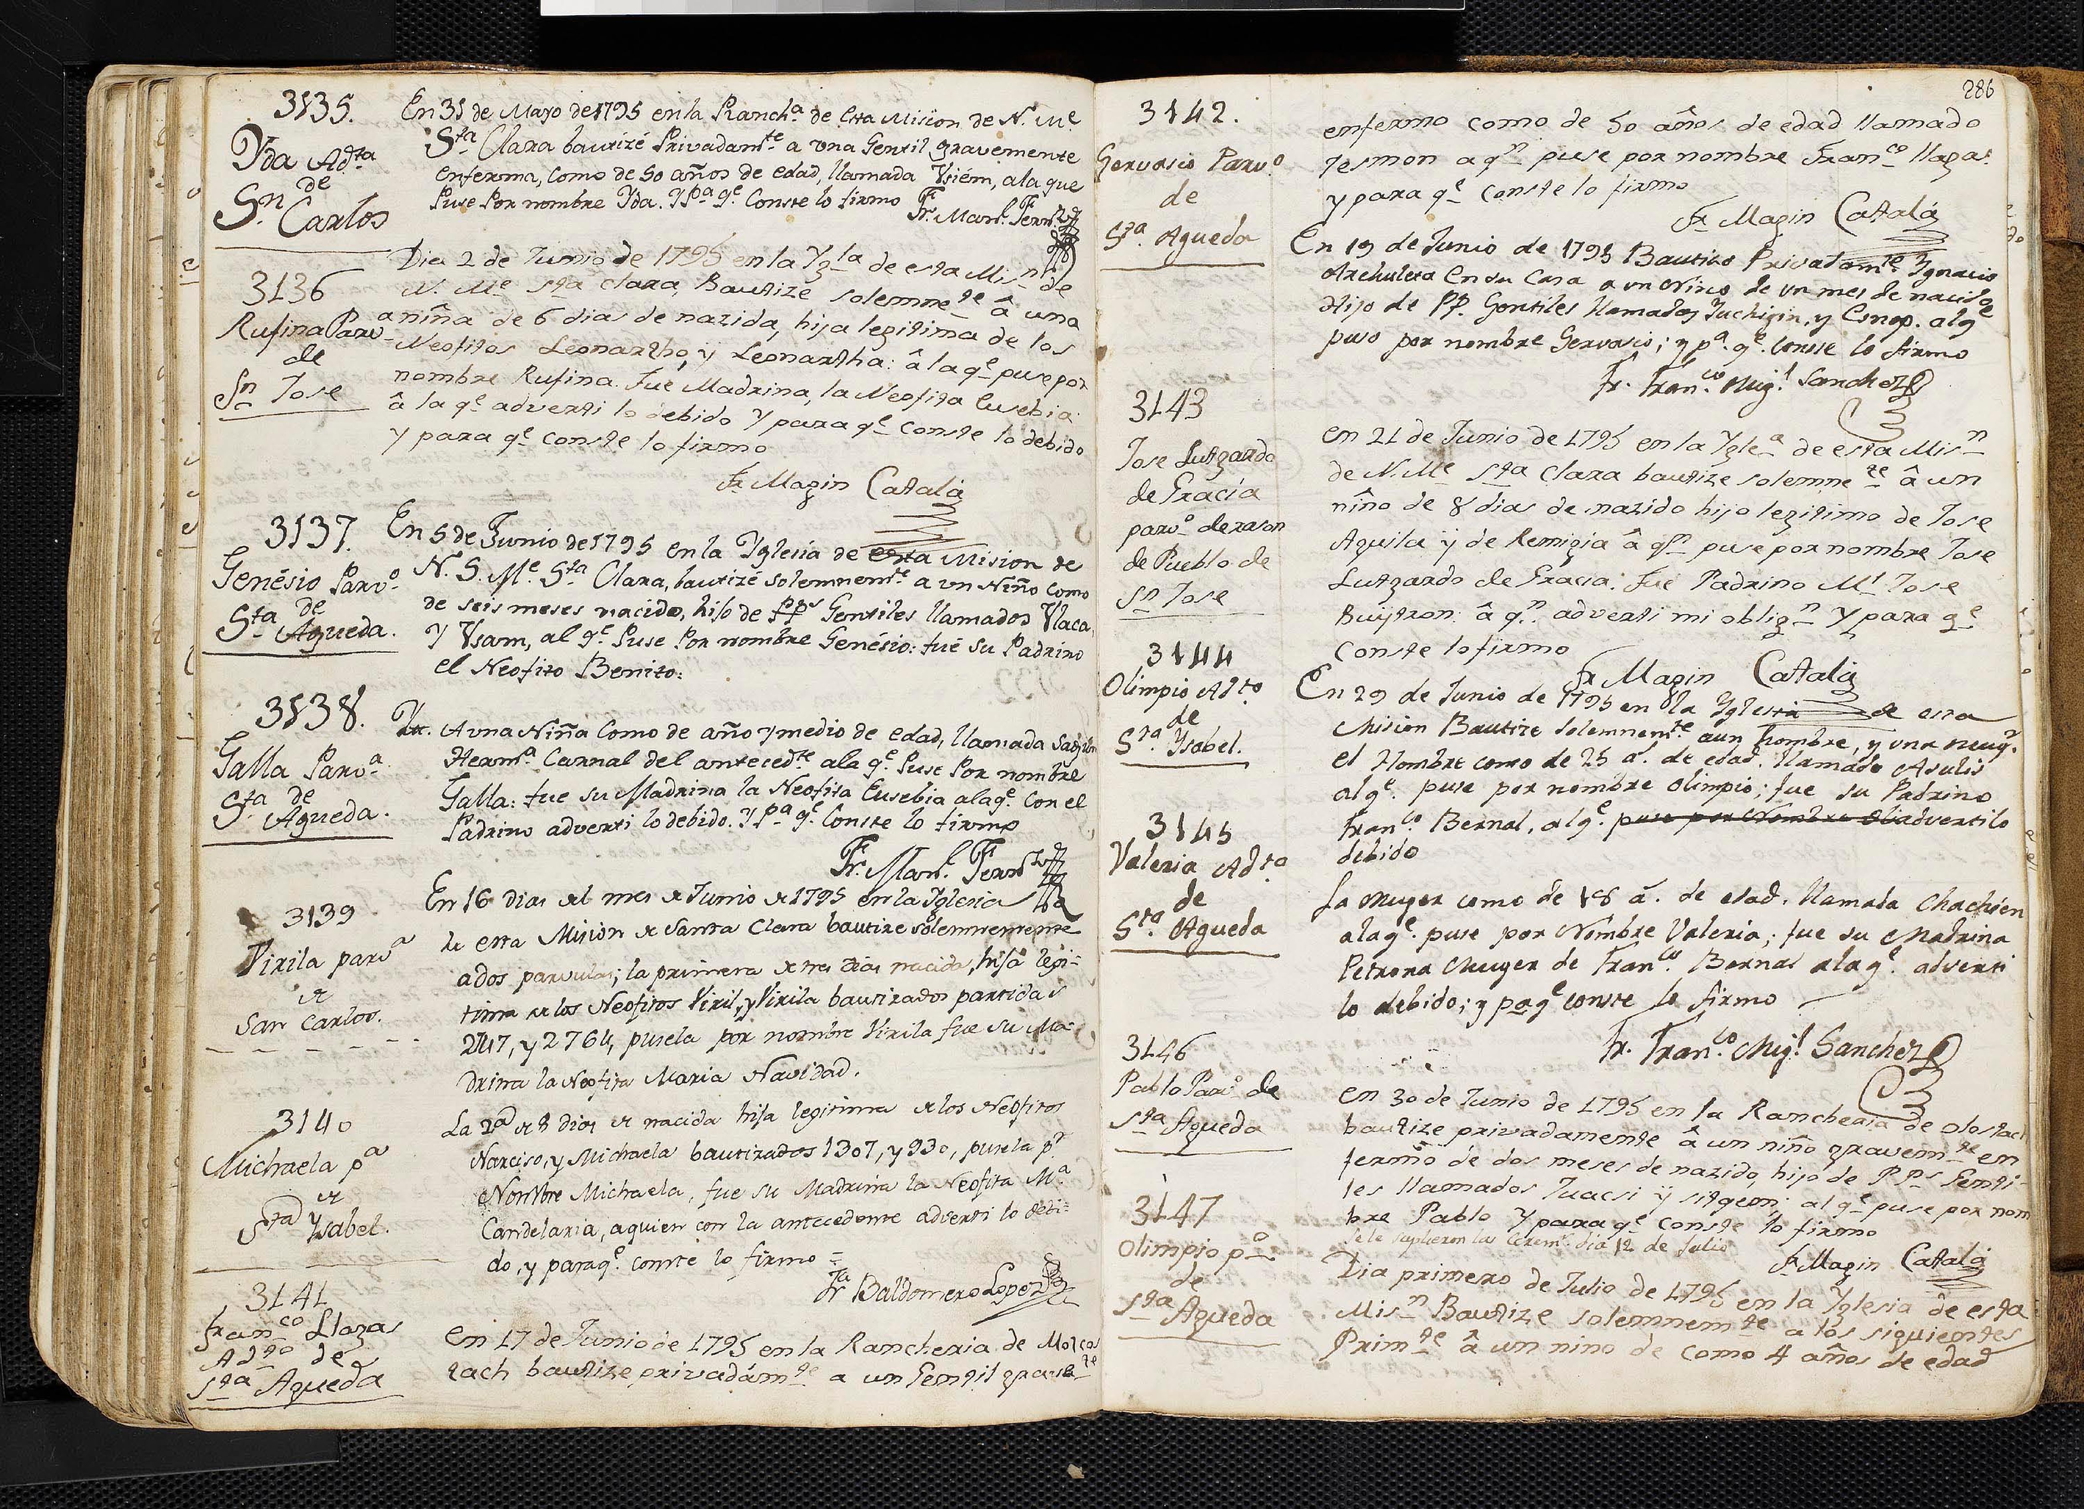 3135.
Yda Ad.ta
de
S.n Carlos
En 31 de Mayo de 1795 en la Ranch.a de Esta Mision de N. M.e
S.ta Clara bautizé Privadam.te a vna Gentil gravemente
enferma, como de 50 años de edad, llamada Usiém, a la que
Puse Por nombre Yda. Y P.a q.e Conste lo firmo Fr. Man.l Fern.z
3136
Rufina Parv.a
de
S.n Jose
Dia 2 de Junio de 1795 en la Yg.la de esta Mis.n de
N. M.e Sta Clara, Bautize solemne.te â una
niña de 6 dias de nazida, hija legitima de los
Neofitos Leonartho, y Leonartha: â la q.e puse por
nombre Rufina. Fue Madrina, la Neofita Eusebia
â la q.e adverti lo debido Y para q.e conste lo debido
Y para q.e conste lo firmo
Fr. Magin Catalá
3137.
Genésio Parv.o
de
S.ta Agueda.
En 5 de Junio de 1795 en la Yglesia de esta Mision de
N. S. M.e S.ta Clara, bautizé solemnem.te a vn Niño como
de seis meses nacido, hijo de PP.s Gentiles llamados Ulaca,
Y Usam, al q.e Puse Por nombre Genésio: fué su Padrino
el Neofito Benito:
3138.
Galla Parv.a
de
S.ta Agueda.
Yt. A vna Niña Como de año y medio de edad, llamada
Herm.a Carnal del anteced.te a la q.e Puse Por nombre
Galla: fue su Madrina la Neofita Eusebia a la q.e con el
Padrino adverti lo debido. Y P.a q.e Conste lo firmo
Fr. Man.l Fern.z
3139
Virila parv.a
de
San Carlos.
En 16 dias del mes de Junio de 1795 en la Yglesia
de esta Mision de Santa Clara bautize solemnemente
a dos parvulas; la primera de tres dias nacida, hija legi-
tima de los Neofitos Viril, y Virila bautizados partidas
2747, y 2764, pusela por nombre Virila fue su Ma-
drina la Neofita Maria Navidad.
3140
Michaela p.a
de
S.ta Ysabel.
La 2.a de 8 dias de nacida hija legitima de los Neofitos
Narciso, y Michaela bautizados 1307, y 930, pusela p.r
Nombre Michaela, fue su Madrina la Neofita M.a
Candelaria, a quien con la antecedente adverti lo debi-
do, y para q.e conste lo firmo =
Fr Baldomero Lopez
3141
Fran.co Llagas
Adto de
Sta Agueda
en 17 de Junio de 1795 en la Rancheria de
tach bautize privadám.te a un Gentil
286
enfermo como de 50 años de edad llamado
Jesmon a q.n puse por nombre Fran.co llagas
y para q.e conste lo firmo
Fr Magin Catalá
3142.
Gervasio Parv.o
de
S.ta Agueda
En 19 de Junio de 1795 Bautizo Privatam.te Ygnacio
Archuleta en su Casa a un Niño de un mes de nacido
Hijo de PP. Gentiles llamados Juchigin, y al q.e
puso por nombre Gervasio; y p.a q.e conste lo firmo
Fr. Fran.co Mig.l Sanchez
3143
Jose Lutgardo
de Gracia
parv.o de rason
de Pueblo de
S.n Jose
en 21 de Junio de 1795 en la Ygle.a de esta Mis.n
de N. M.e Sta Clara bautize solemne.te â un
niño de 8 dias de nazido hijo legitimo de Jose
Aguila y de Remigia â q.n puse por nombre Jose
Lutgardo de Gracia: Fué Padrino M.l Jose
Buytron: â q.n adverti mi oblig.n Y para q.e
conste lo firmo
Fr Magin Catalá
3144
Olimpio Ad.to
de
S.ta Ysabel.
En 29 de Junio de 1795 en la Yglesia de esta
Mision Bautize solemnem.te a un hombre, y una Mug.r
el Hombre como de 25 a.s de edad. llamado Asulis
al q.e puse por nombre Olimpio; fue su Padrino
Fran.co Bernal, al q.e puse por Nombre Oli adverti lo
debido
3145
Valeria Ad.ta
de
S.ta Agueda
La Muger como de 18 a.s de edad. llamada Chachien
a la q.e puse por Nombre Valeria; fue su Madrina
Petrona Muger de Fran.co Bernal a la q.e adverti
lo debido; y p.a q.e conste lo firmo
Fr. Fran.co Mig.l Sanchez
3146
Pablo Parv.o de
Sta Agueda
en 30 de Junio de 1795 en la Rancheria de
bautize privadamente â un niño gravem.te en
fermo de dos meses de nazido, hijo de PP.s Genti-
les llamados Tuacsi y sitgeon; al q.e puse por nom
bre Pablo Y para q.e conste lo firmo
se le suplieron las Cerem.s dia 12 de Julio
Fr Magin Catalá
3147
Olimpio p.o
de
Sta Agueda
Dia primero de Julio de 1795 en la Yglesia de esta
Mis.n Bautize solemnem.te a los siguientes
Prim.te â un nino de como 4 años de edad